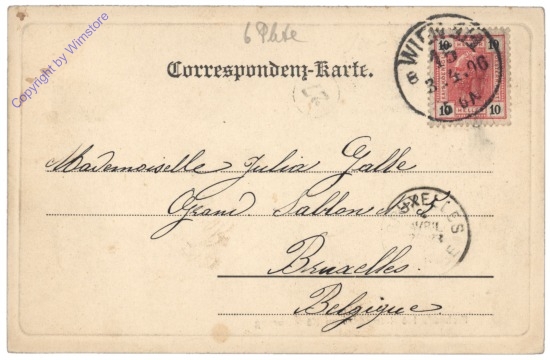 6 Plate
Correspondenz-Karte.
WIEN
10 10
10 10
Mademoiselle Julia Galle
Grand Sablon
BRUXELLES
Bruxelles.
Belgique
Copyright by Wimstore